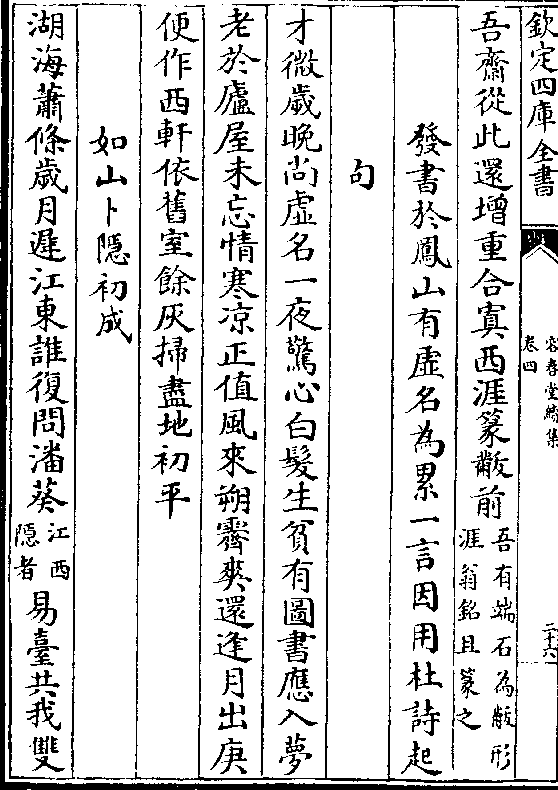 欽定四庫全書
容春堂續集
卷四
二十六
吾齋從此還增重合寘西涯篆黻前吾有端石為黻形
涯翁銘且篆之
發書於鳳山有虛名為累一言因用杜詩起
句
才微歲晚尚虛名一夜驚心白髮生貧有圖書應入夢
老於廬屋未忘情寒凉正值風來朔霽爽還逢月出庚
便作西軒依舊室餘灰掃盡地初平
如山卜隱初成
湖海蕭條歲月遲江東誰復問潘葵江西
隱者易臺共我雙